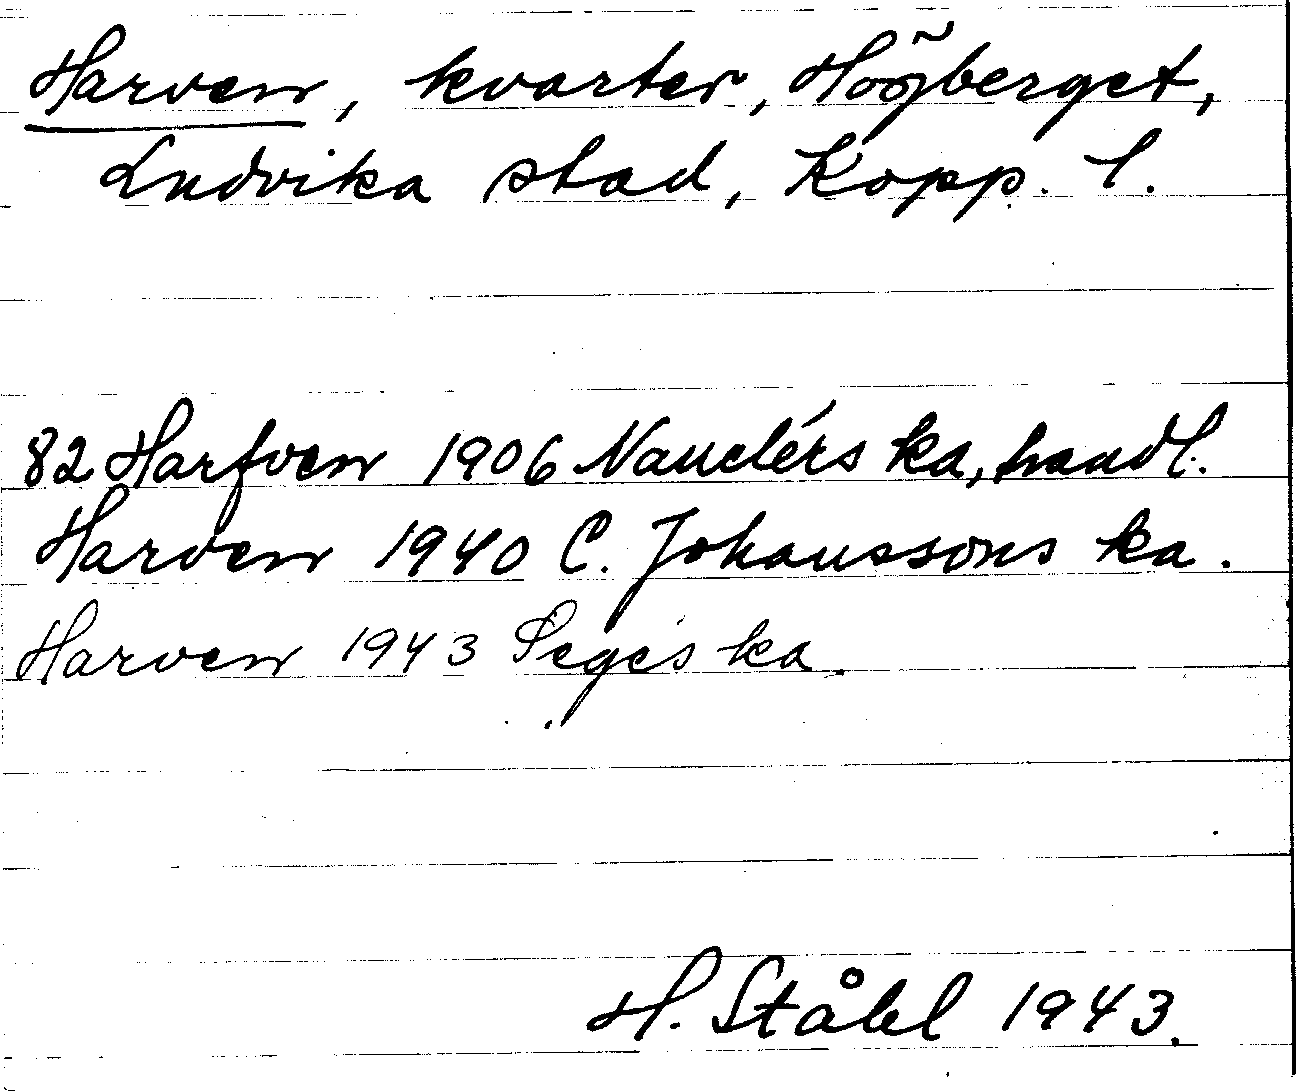 Harven, kvarter, Högberget,
Ludvika stad, Kopp. l.
82 Harfven 1906 Nauclérs ka, handl.
Harven 1940 C. Johanssons ka.
Harven 1943 Seges ka.
H. Ståhl 1943.